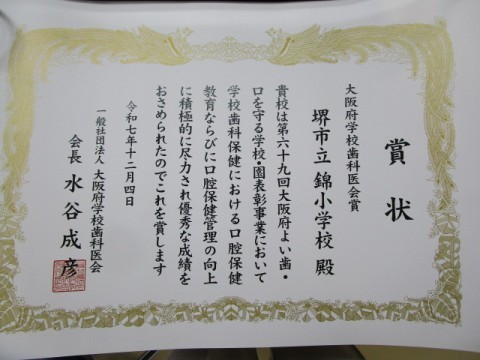 賞状
大阪府学校歯科医会賞
堺市立錦小学校 殿
貴校は第六十九回大阪府よい歯・
口を守る学校・園表彰事業において
学校歯科保健における口腔保健
教育ならびに口腔保健管理の向上
に積極的に尽力され優秀な成績を
おさめられたのでこれを賞します
令和七年十二月四日
一般社団法人 大阪府学校歯科医会
会長 水谷成彦